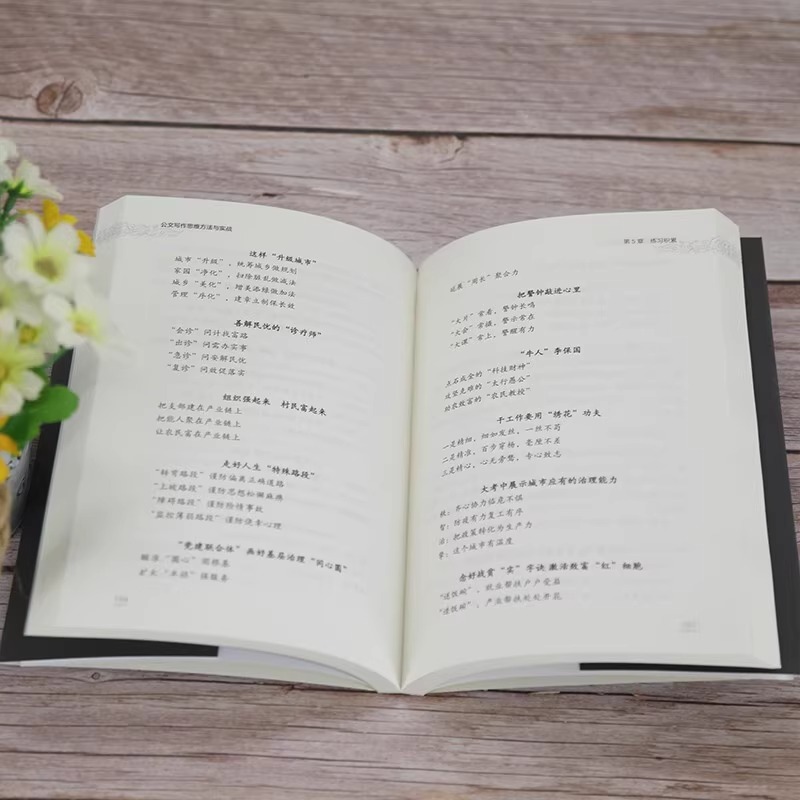 公文写作思维方法与实战
这样“升级城市”
城市“升级”,统筹城乡做规划
家园“净化”,扫除脏乱做减法
城乡“美化”,增美添绿做加法
管理“序化”,建章立制保长效
善解民忧的“诊疗师”
“会诊”问计找富路
“出诊”问需办实事
“急诊”问安解民忧
“复诊”问效促落实
组织强起来 村民富起来
把支部建在产业链上
把能人聚在产业链上
让农民富在产业链上
走好人生“特殊路段”
“转弯路段”谨防偏离正确道路
“上坡路段”谨防思想松懈麻痹
“障碍路段”谨防险情事故
“监控薄弱路段”谨防侥幸心理
“党建联合体”画好基层治理“同心圆”
瞄准“圆心”固根基
扩大“半径”强服务
第5章 练习积累
延展“周长”聚合力
把警钟敲进心里
“大片”常看,警钟长鸣
“大会”常摄,警示常在
“大课”常上,警醒有力
“牛人”李保国
点石成金的“科技财神”
攻坚克难的“太行愚公”
助农致富的“农民教授”
干工作要用“绣花”功夫
一是精细,细如发丝,一丝不苟
二是精准,百步穿杨,毫厘不差
三是精心,心无旁骛,专心致志
大考中展示城市应有的治理能力
秩:齐心协力临危不惧
智:防疫有力复工有序
治:把政策转化为生产力
挚:这个城市有温度
念好战贫“实”字诀 激活致富“红”细胞
“送饭碗”,就业帮扶户户受益
“造饭碗”,产业帮扶处处开花